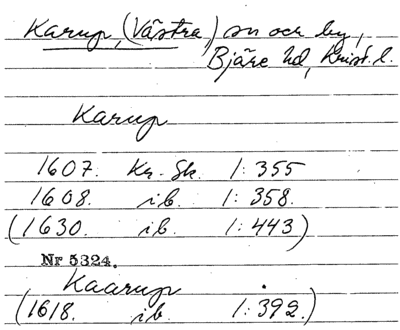 Karup, (Västra) sn och by,
Bjäre hd, Krist. l.
Karup
1607. Kr. Sk. 1: 355
1608. ib. 1: 358.
(1630. ib. 1: 443)
Nr 5324.
Kaarup
(1618. ib. 1: 392.)